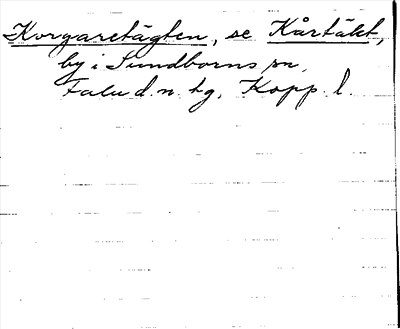 Korgaretägten, se Kårtäkt,
by i Sundborns sn,
Falu d. n. tg, Kopp. l.